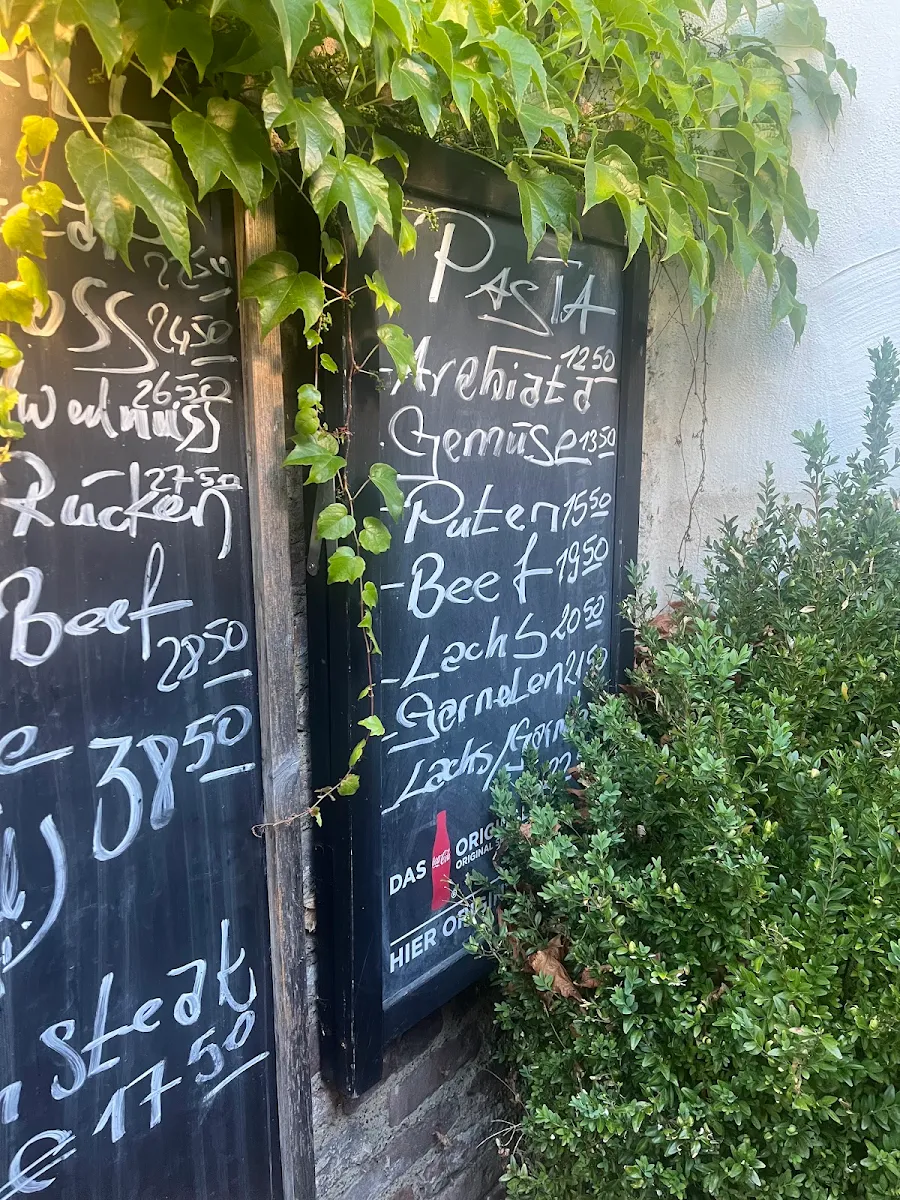 2250
SS 2450
26.50
27.50
Rücken
Beef
2850
e 3850
Steak
e 1750
PASTA
-Arebiata 1250
Gemüse 1350
-Puten 1550
-Beef 1950
-Lachs 2050
-Garnelen 2150
-Lachs/Garn
DAS Coca-Cola ORIG
ORIGINAL
HIER ORIGIN